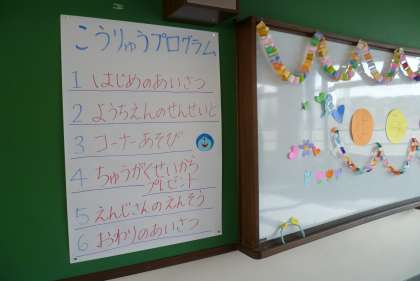 こうりゅうプログラム
1 はじめのあいさつ
2 ようちえんのせんせいと
3 コーナーあそび
4 ちゅうがくせいから
プレゼント
5 えんじさんのえんそう
6 おわりのあいさつ